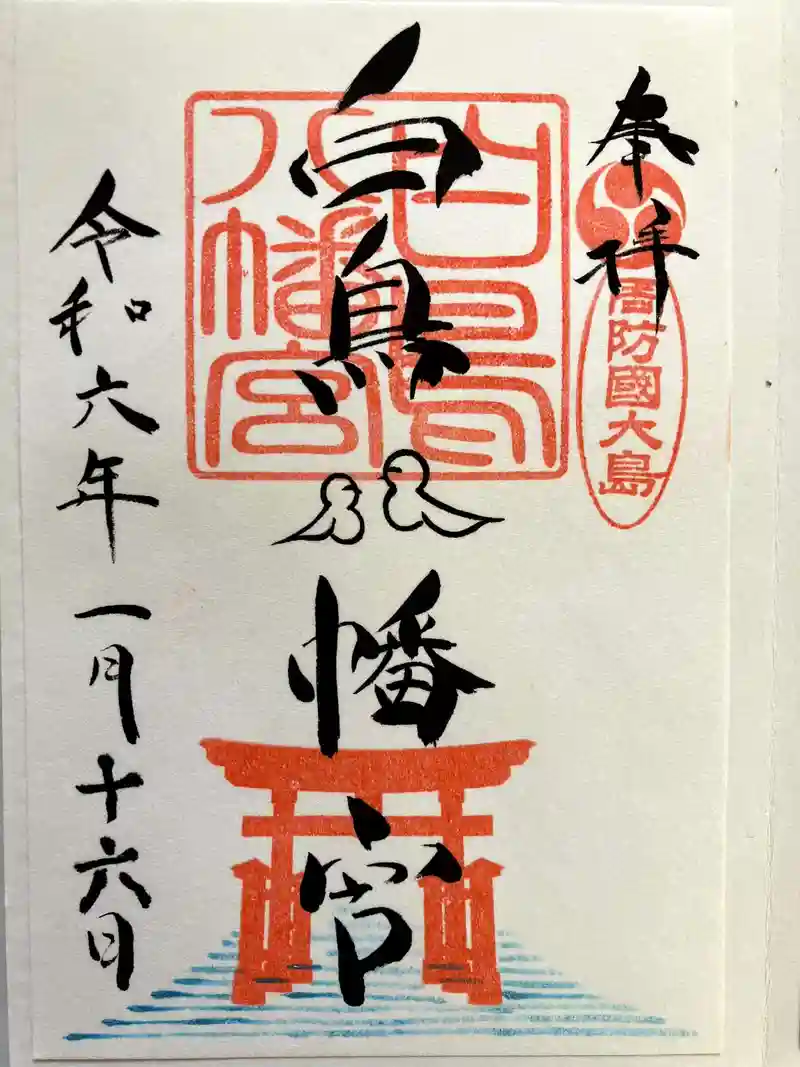 奉拝
周防國大島
白鳥八幡宮
白鳥
八幡宮
令和六年一月十六日